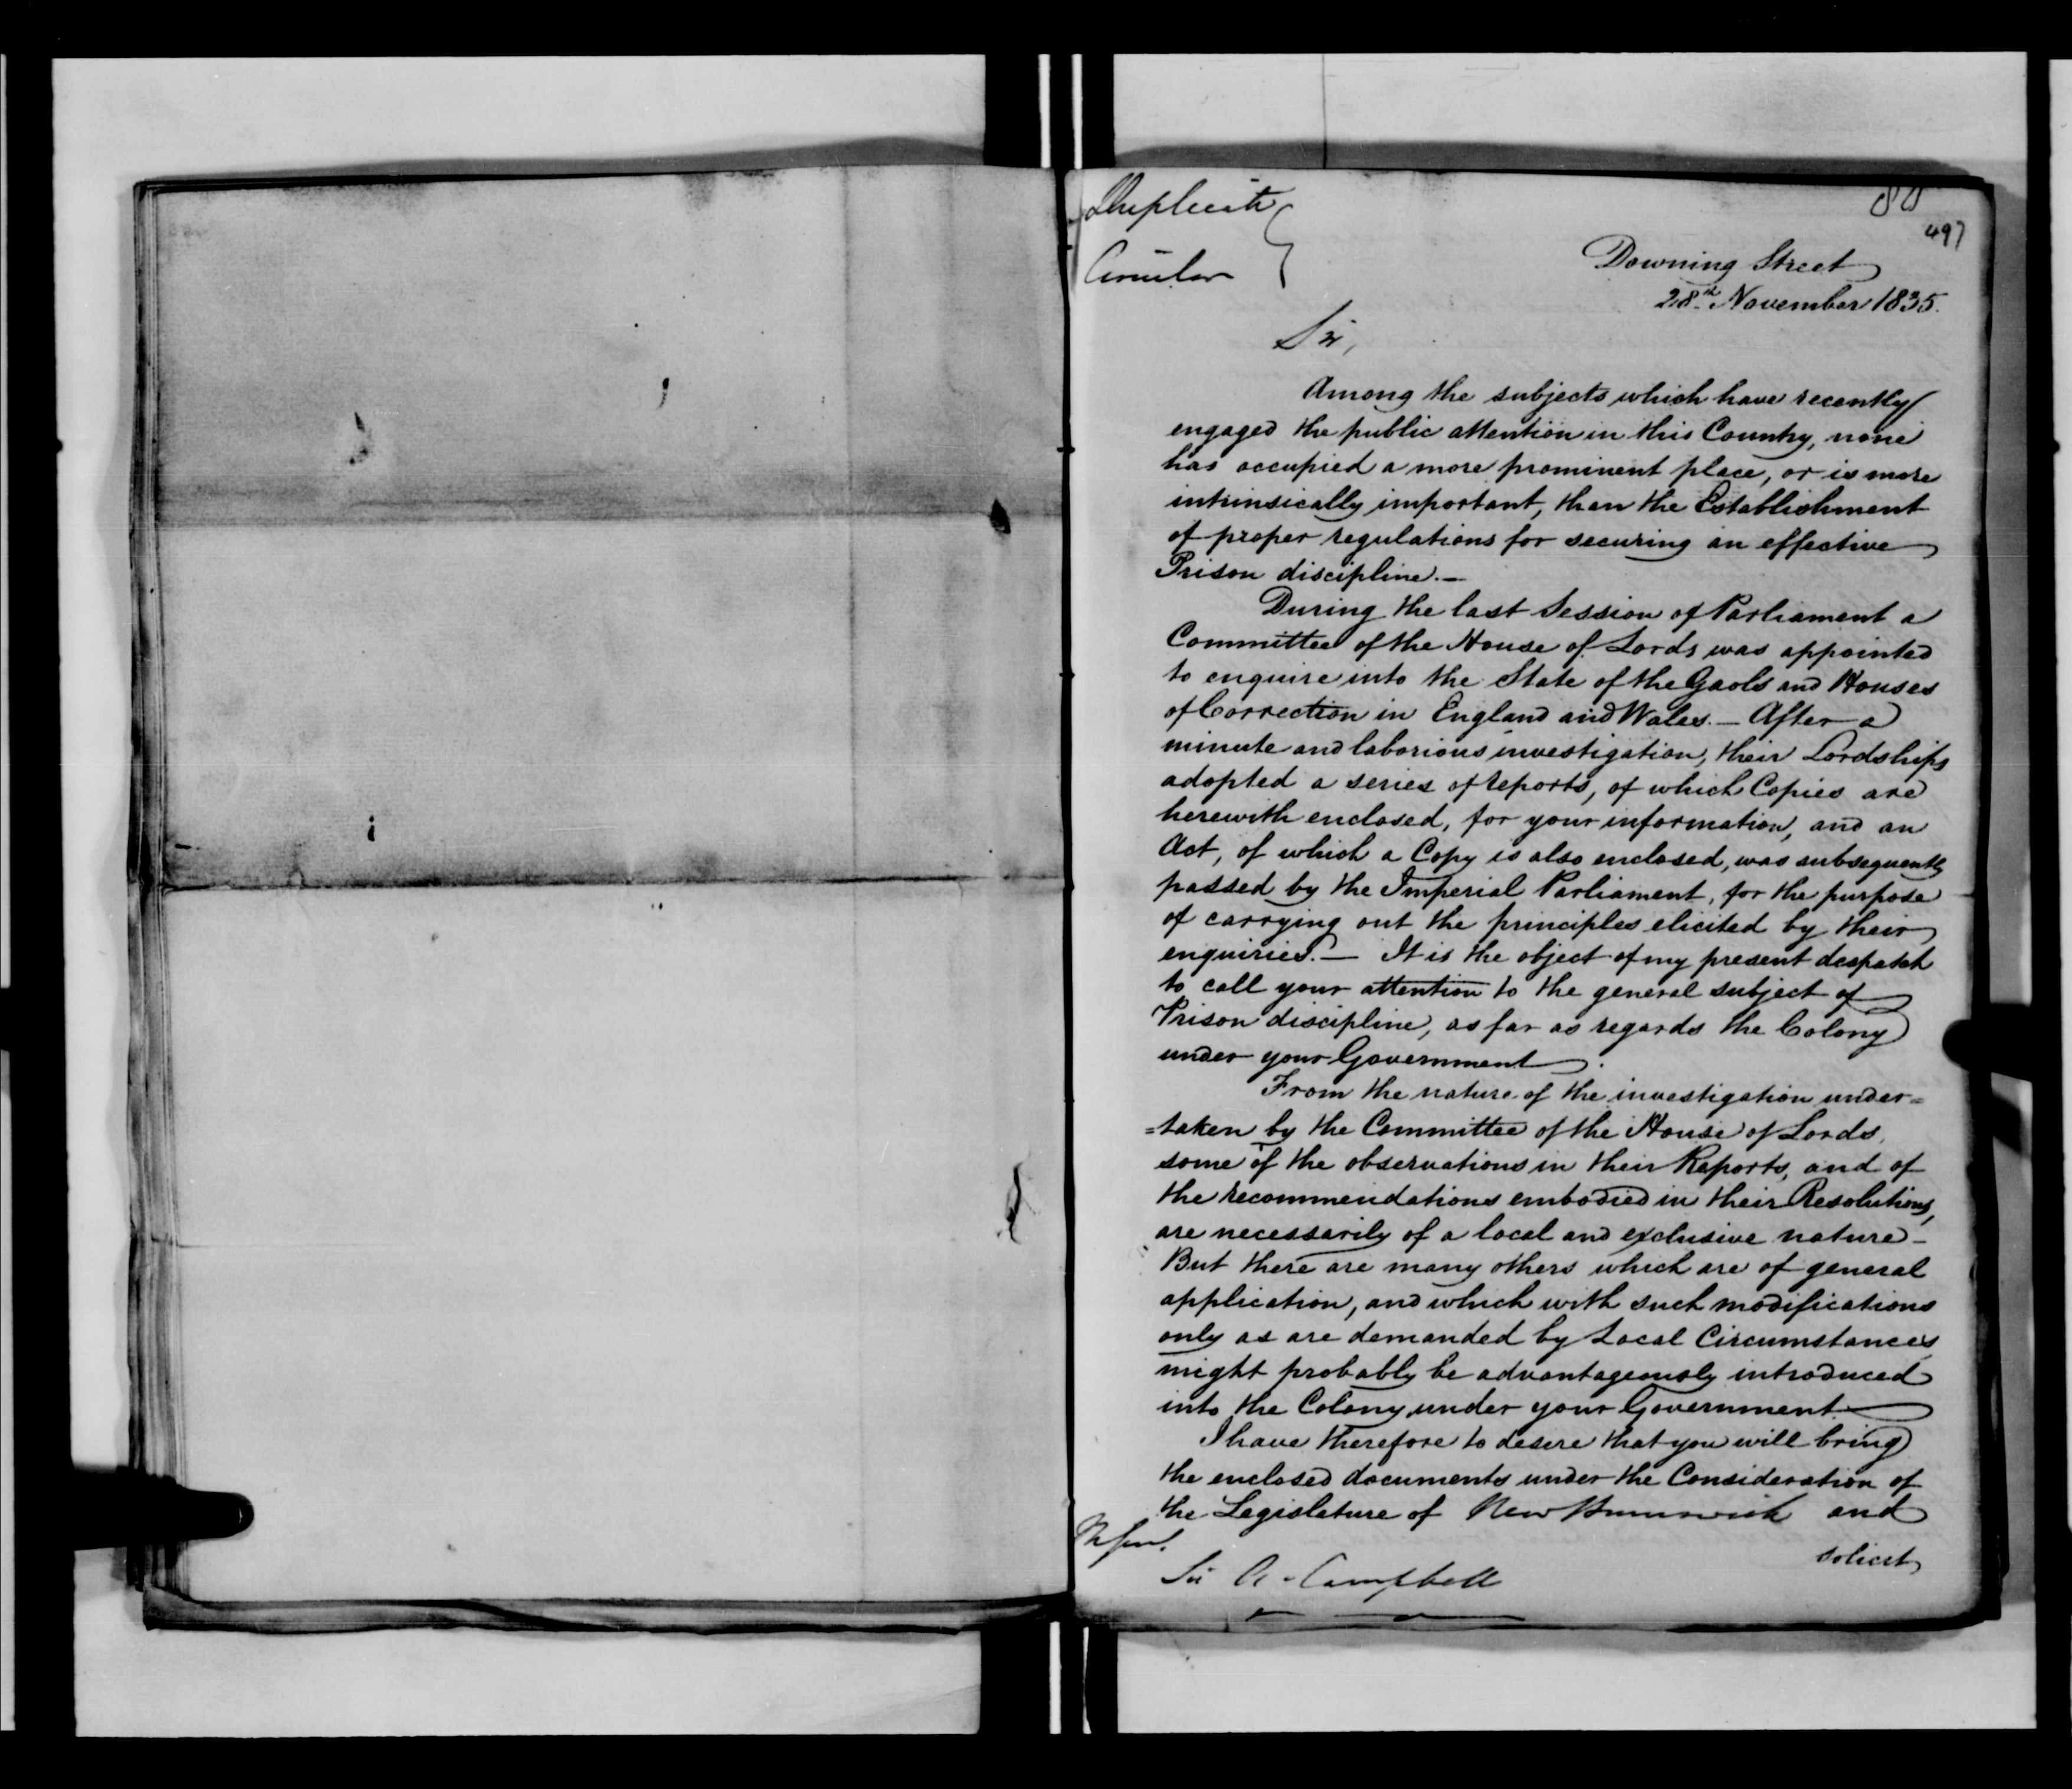 Duplicate
Circular
497
Downing Street
28th November 1835.
Sir,
Among the subjects which have recently
engaged the public attention in this Country, none
has occupied a more prominent place, or is more
intrinsically important, than the Establishment
of proper regulations for securing an effective
Prison discipline.—
During the last Session of Parliament a
Committee of the House of Lords was appointed
to enquire into the State of the Gaols and Houses
of Correction in England and Wales.— After a
minute and laborious investigation, their Lordships
adopted a series of reports, of which Copies are
herewith enclosed, for your information, and an
Act, of which a Copy is also enclosed, was subsequently
passed by the Imperial Parliament, for the purpose
of carrying out the principles elicited by their
enquiries.— It is the object of my present despatch
to call your attention to the general subject of
Prison discipline, as far as regards the Colony
under your Government.
From the nature of the investigation under=
=taken by the Committee of the House of Lords,
some of the observations in their Reports, and of
the recommendations embodied in their Resolutions,
are necessarily of a local and exclusive nature—
But there are many others which are of general
application, and which with such modifications
only as are demanded by Local Circumstances
might probably be advantageously introduced
into the Colony under your Government.
I have therefore to desire that you will bring
the enclosed documents under the Consideration of
the Legislature of New Brunswick and
solicit
Sir A. Campbell